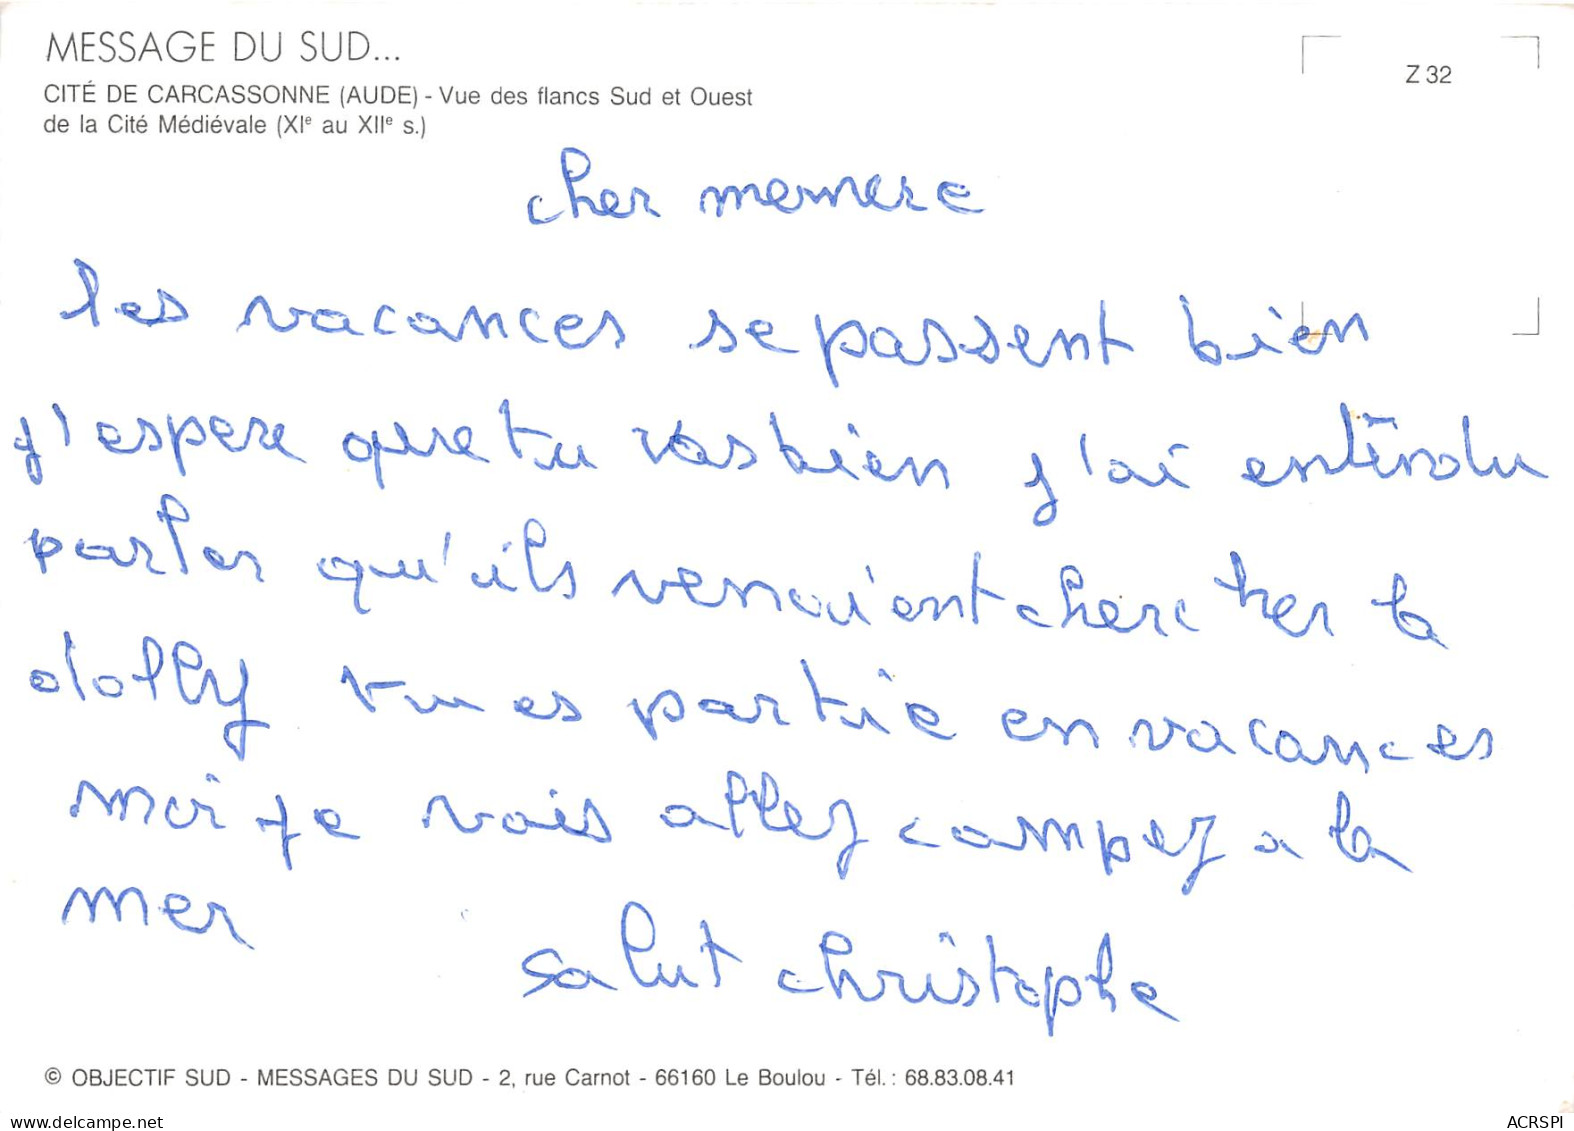 MESSAGE DU SUD...
Z 32
CITÉ DE CARCASSONNE (AUDE) - Vue des flancs Sud et Ouest
de la Cité Médiévale (XIe au XIIe s.)
cher memere
les vacances se passent bien
j'espere que tu vas bien j'ai entendu
parler qu'ils venai'ent chercher la
dolly tu es partie en vacances
moi je vais allez campez a la
mer
salut christophe
© OBJECTIF SUD - MESSAGES DU SUD - 2, rue Carnot - 66160 Le Boulou - Tél. : 68.83.08.41
www.delcampe.net
ACRSPI